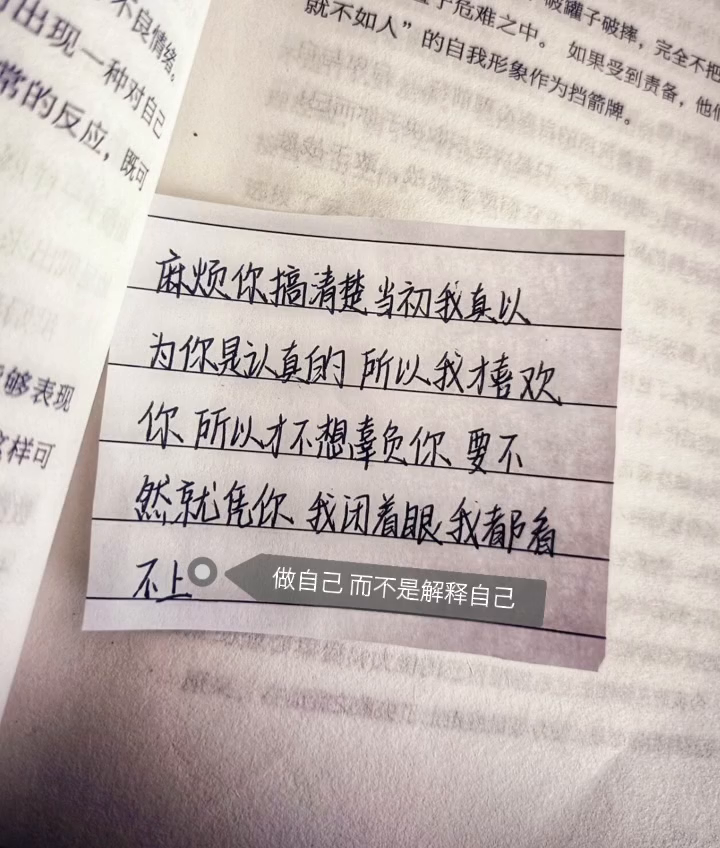 不良情绪。
出现一种对自己
常的反应，既可
够表现
这样可
危难之中。如果受到责备，他们
破罐子破摔，完全不把
就不如人”的自我形象作为挡箭牌。
麻烦你搞清楚当初我真以
为你是认真的 所以我才喜欢
你 所以才不想辜负你 要不
然就凭你 我闭着眼 我都看
不上
做自己 而不是解释自己